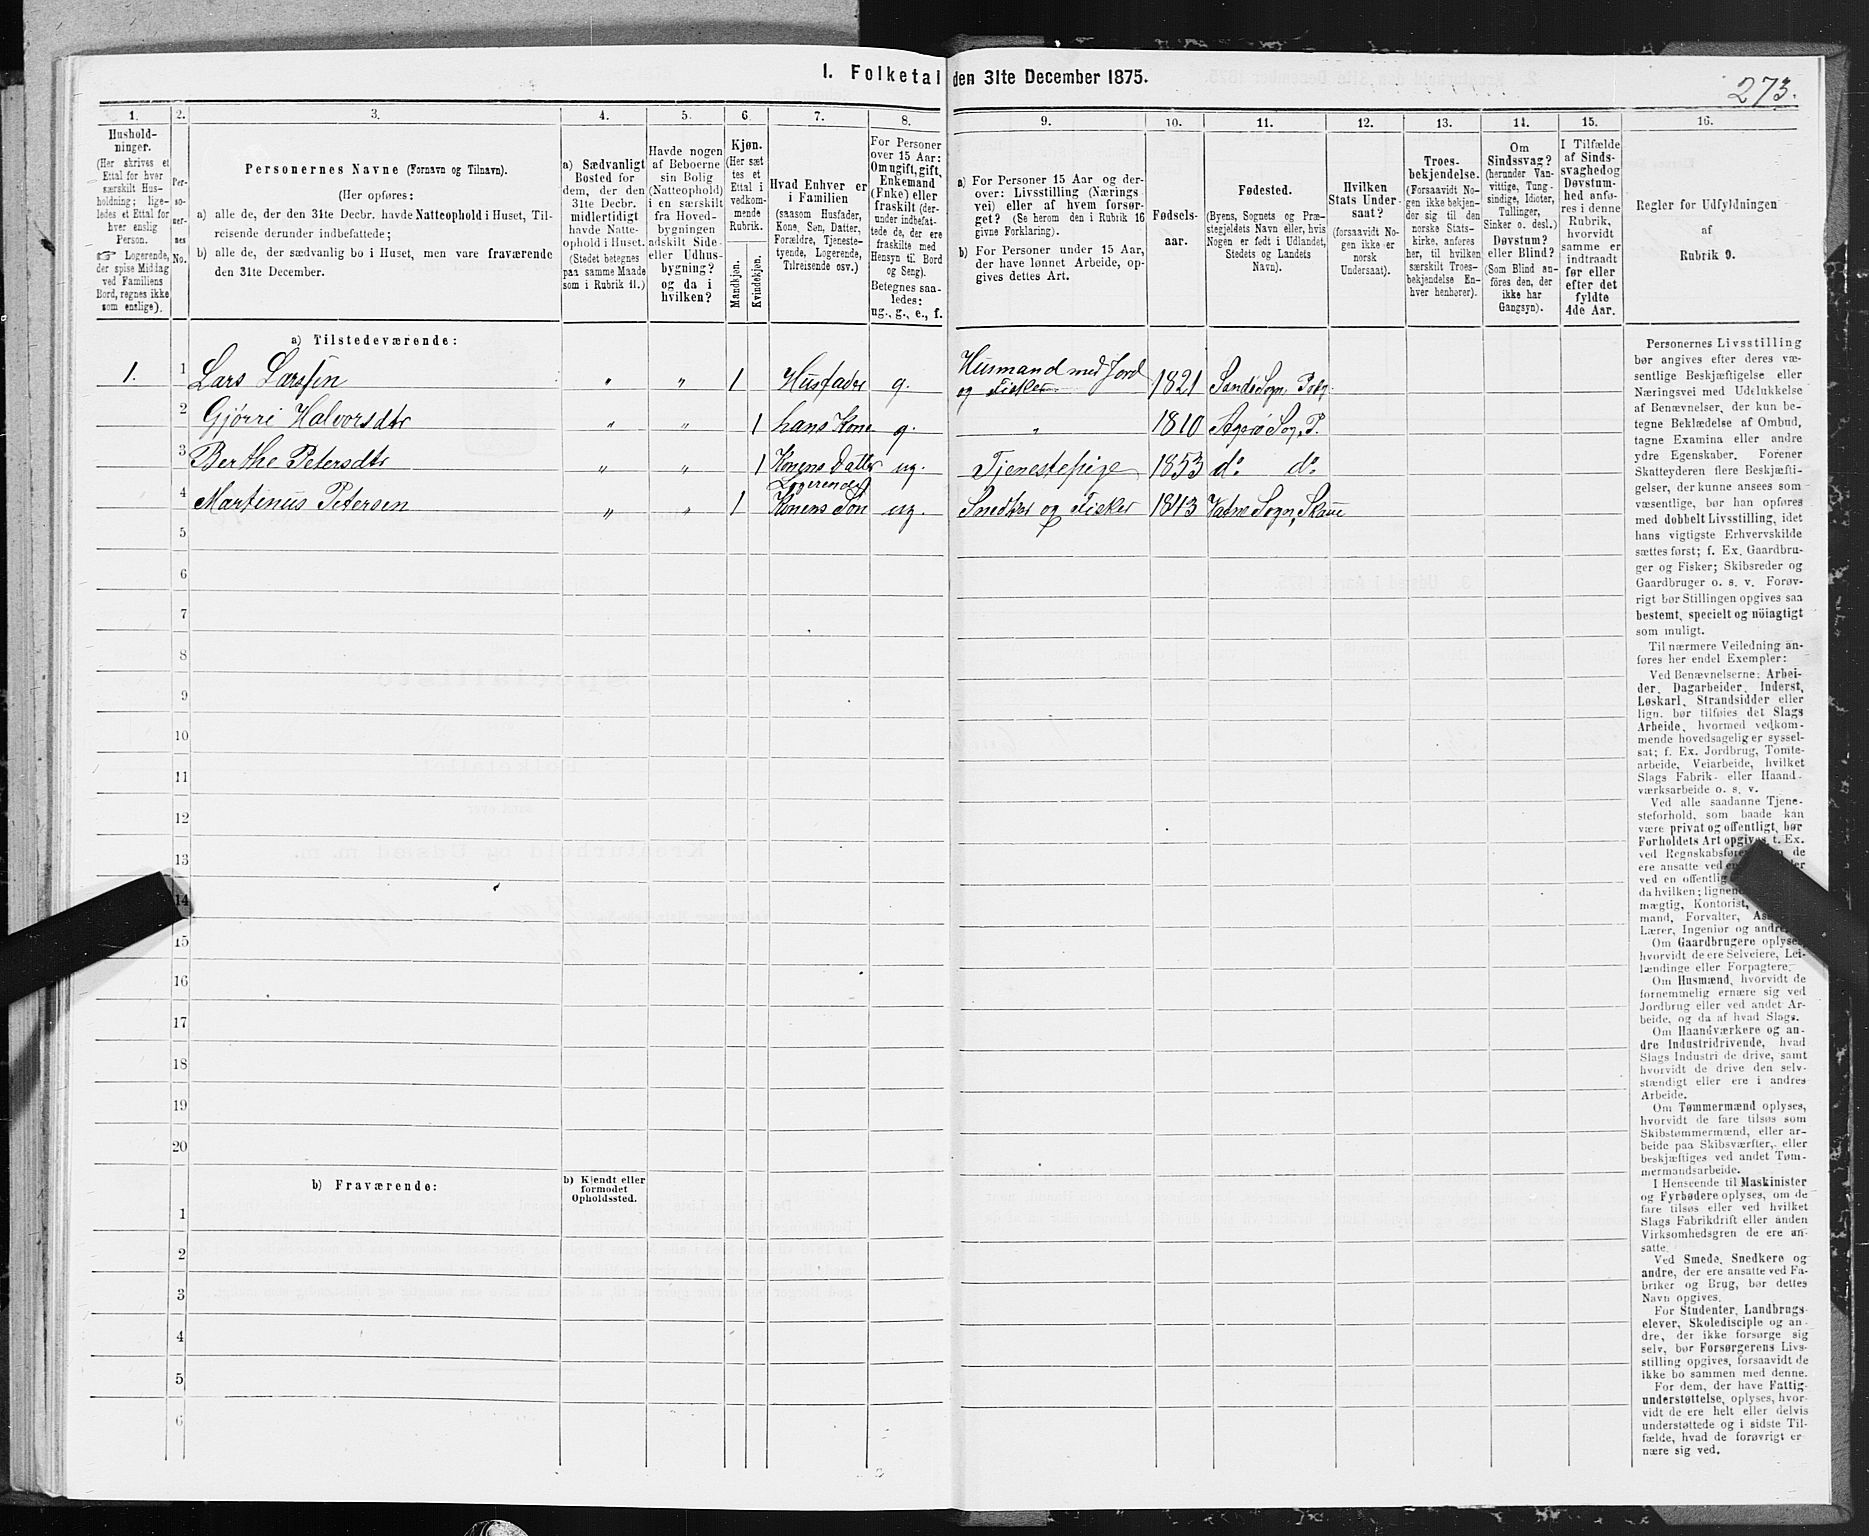 1. Folketal den 31te December 1875.
273.
1.
Hushold-
ninger.
(Her skrives et
Ettal for hver
særskilt Hus-
holdning; lige-
ledes et Ettal for
hver enslig
Person.
☞ Logerende,
der spise Middag
ved Familiens
Bord, regnes ikke
som enslige).
2.
Per-
so-
ner-
nes
No.
3.
Personernes Navne (Fornavn og Tilnavn).
(Her opføres:
a) alle de, der den 31te Decbr. havde Natteophold i Huset, Til-
reisende derunder indbefattede;
b) alle de, der sædvanlig bo i Huset, men vare fraværende
den 31te December.
4.
a) Sædvanligt
Bosted for
dem, der den
31te Decbr.
midlertidigt
havde Natte-
ophold i Huset.
(Stedet betegnes
paa samme Maade
som i Rubrik 11.)
5.
Havde nogen
af Beboerne
sin Bolig
(Natteophold)
i en særskilt
fra Hoved-
bygningen
adskilt Side-
eller Udhus-
bygning?
og da i
hvilken?
6.
Kjøn.
(Her sæt
tes et
Ettal i
vedkom-
mende
Rubrik.
Mandkjøn.
Kvindekjøn.
7.
Hvad Enhver er
i Familien
(saasom Husfader,
Kone, Søn, Datter,
Forældre, Tjeneste-
tyende, Logerende,
Tilreisende osv.)
8.
For Personer
over 15 Aar:
Om ugift, gift,
Enkemand
(Enke) eller
fraskilt (der-
under indbefat-
tede de, der ere
fraskilte med
Hensyn til Bord
og Seng).
Betegnes saa-
ledes:
ug., g., e., f.
9.
a) For Personer 15 Aar og der-
over: Livsstilling (Nærings-
vei) eller af hvem forsør-
get? (Se herom den i Rubrik 16
givne Forklaring).
b) For Personer under 15 Aar,
der have lønnet Arbeide, op-
gives dettes Art.
10.
Fødsels-
aar.
11.
Fødested.
(Byens, Sognets og Præ-
stegjeldets Navn eller, hvis
Nogen er født i Udlandet,
Stedets og Landets
Navn).
12.
Hvilken
Stats Under-
saat?
(forsaavidt No-
gen ikke er
norsk
Undersaat).
13.
Troes-
bekjendelse.
(Forsaavidt No-
gen ikke bekjen-
der sig til den
norske Stats-
kirke, anføres
her, til hvilken
særskilt Troes-
bekjendelse En-
hver henhører).
14.
Om
Sindssvag?
(herunder Van-
vittige, Tung-
sindige, Idioter,
Tullinger,
Sinker o. desl.)
Døvstum?
eller Blind?
(Som Blind an-
føres den, der
ikke har
Gangsyn).
15.
I Tilfælde
af Sinds-
svaghed og
Døvstum-
hed anfø-
res i denne
Rubrik,
hvorvidt
samme er
indtraadt
før eller
efter det
fyldte
4de Aar.
16.
Regler for Udfyldningen
af
Rubrik 9.
a) Tilstedeværende:
1. 1 Lars Larssen " " 1 Husfader g. Husmand med Jord
og Fisker 1821 Sande Sogn,
2 Gjørri Halvorsdtr " " 1 hans Kone g. " 1810 Sogn, P.
3 Berthe Petersdtr " " 1 Konens Datter ug. Tjenestepige 1853 do do
4 Martinus Petersen " " 1 Logerende
Konens Søn ug. Snedker og Fisker 1843 Sogn,
5
6
7
8
9
10
11
12
13
14
15
16
17
18
19
20
b) Fraværende:
b) Kjendt eller
formodet
Opholdssted.
1
2
3
4
5
6
Personernes Livsstilling
bør angives efter deres væ-
sentlige Beskjæftigelse eller
Næringsvei med Udelukkelse
af Benævnelser, der kun be-
tegne Beklædelse af Ombud,
tagne Examina eller andre
ydre Egenskaber. Forener
Skatteyderen flere Beskjæfti-
gelser, der kunne ansees som
væsentlige, bør han opføres
med dobbelt Livsstilling, idet
hans vigtigste Erhvervskilde
sættes først; f. Ex. Gaardbru-
ger og Fisker; Skibsreder og
Gaardbruger o. s. v. Forøv-
rigt bør Stillingen opgives saa
bestemt, specielt og nøiagtigt
som muligt.
Til nærmere Veiledning an-
føres her endel Exempler:
Ved Benævnelserne: Arbei-
der, Dagarbeider, Inderst,
Løskarl, Strandsidder eller
lign. bør tilføies det Slags
Arbeide, hvormed vedkom-
mende hovedsagelig er syssel-
sat; f. Ex. Jordbrug, Tomte-
arbeide, Veiarbeide, hvilket
Slags Fabrik- eller Haand-
værksarbeide o. s. v.
Ved alle saadanne Tjene-
steforhold, som baade kan
være privat og offentligt, bør
Forholdets Art opgives, t. Ex.
ved Regnskabsfører de
ere ansatte ved
ved en offentlig
da hvilken; lignende
mægtig, Kontorist,
mand, Forvalter,
Lærer, Ingeniør og andre.
Om Gaardbrugere oplyses,
hvorvidt de ere Selveiere, Lei-
lændinge eller Forpagtere.
Om Husmænd, hvorvidt de
fornemmelig ernære sig ved
Jordbrug eller ved andet Ar-
beide, og da af hvad Slags.
Om Haandværkere og an-
dre Industridrivende, hvad
Slags Industri de drive, samt
hvorvidt de drive den selv-
stændigt eller ere i andres
Arbeide.
Om Tømmermænd oplyses,
hvorvidt de fare tilsøs som
Skibstømmermænd, eller ar-
beide paa Skibsværfter, eller
beskjæftiges ved andet Tøm-
mermandsarbeide.
I Henseende til Maskinister
og Fyrbødere oplyses, om de
fare tilsøs eller ved hvilket
Slags Fabrikdrift eller anden
Virksomhedsgren de ere an-
satte.
Ved Smede, Snedkere og
andre, der ere ansatte ved Fa-
briker og Brug, bør dettes
Navn opgives.
For Studenter, Landbrugs-
elever, Skoledisciple og an-
dre, der ikke forsørge sig
selv, bør Forsørgerens Livs-
stilling opgives, forsaavidt de
ikke bo sammen med denne.
For dem, der have Fattig-
understøttelse, oplyses, hvor-
vidt de ere helt eller delvis
understøttede og i sidste Til-
fælde, hvad de forøvrigt er-
nære sig ved.